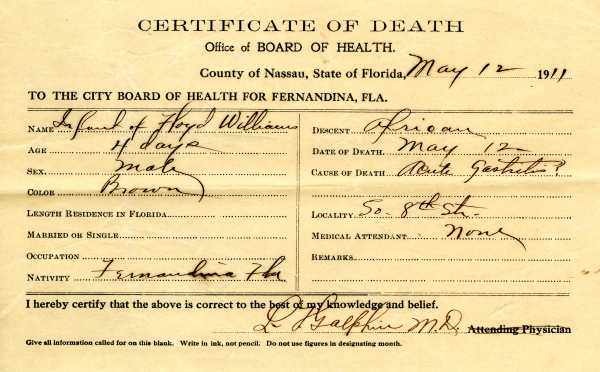 CERTIFICATE OF DEATH
Office of BOARD OF HEALTH.
County of Nassau, State of Florida, May 12 1911
TO THE CITY BOARD OF HEALTH FOR FERNANDINA, FLA.
NAME Infant of Floyd Williams
AGE 4 days
SEX. Male
COLOR Brown
LENGTH RESIDENCE IN FLORIDA
MARRIED OR SINGLE
OCCUPATION
NATIVITY Fernandina Fla
DESCENT African
DATE OF DEATH. May 12
CAUSE OF DEATH Acute Gastritis?
LOCALITY So. 8th Str.
MEDICAL ATTENDANT None
REMARKS
I hereby certify that the above is correct to the best of my knowledge and belief.
Galphin M.D. Attending Physician
Give all information called for on this blank. Write in ink, not pencil. Do not use figures in designating month.